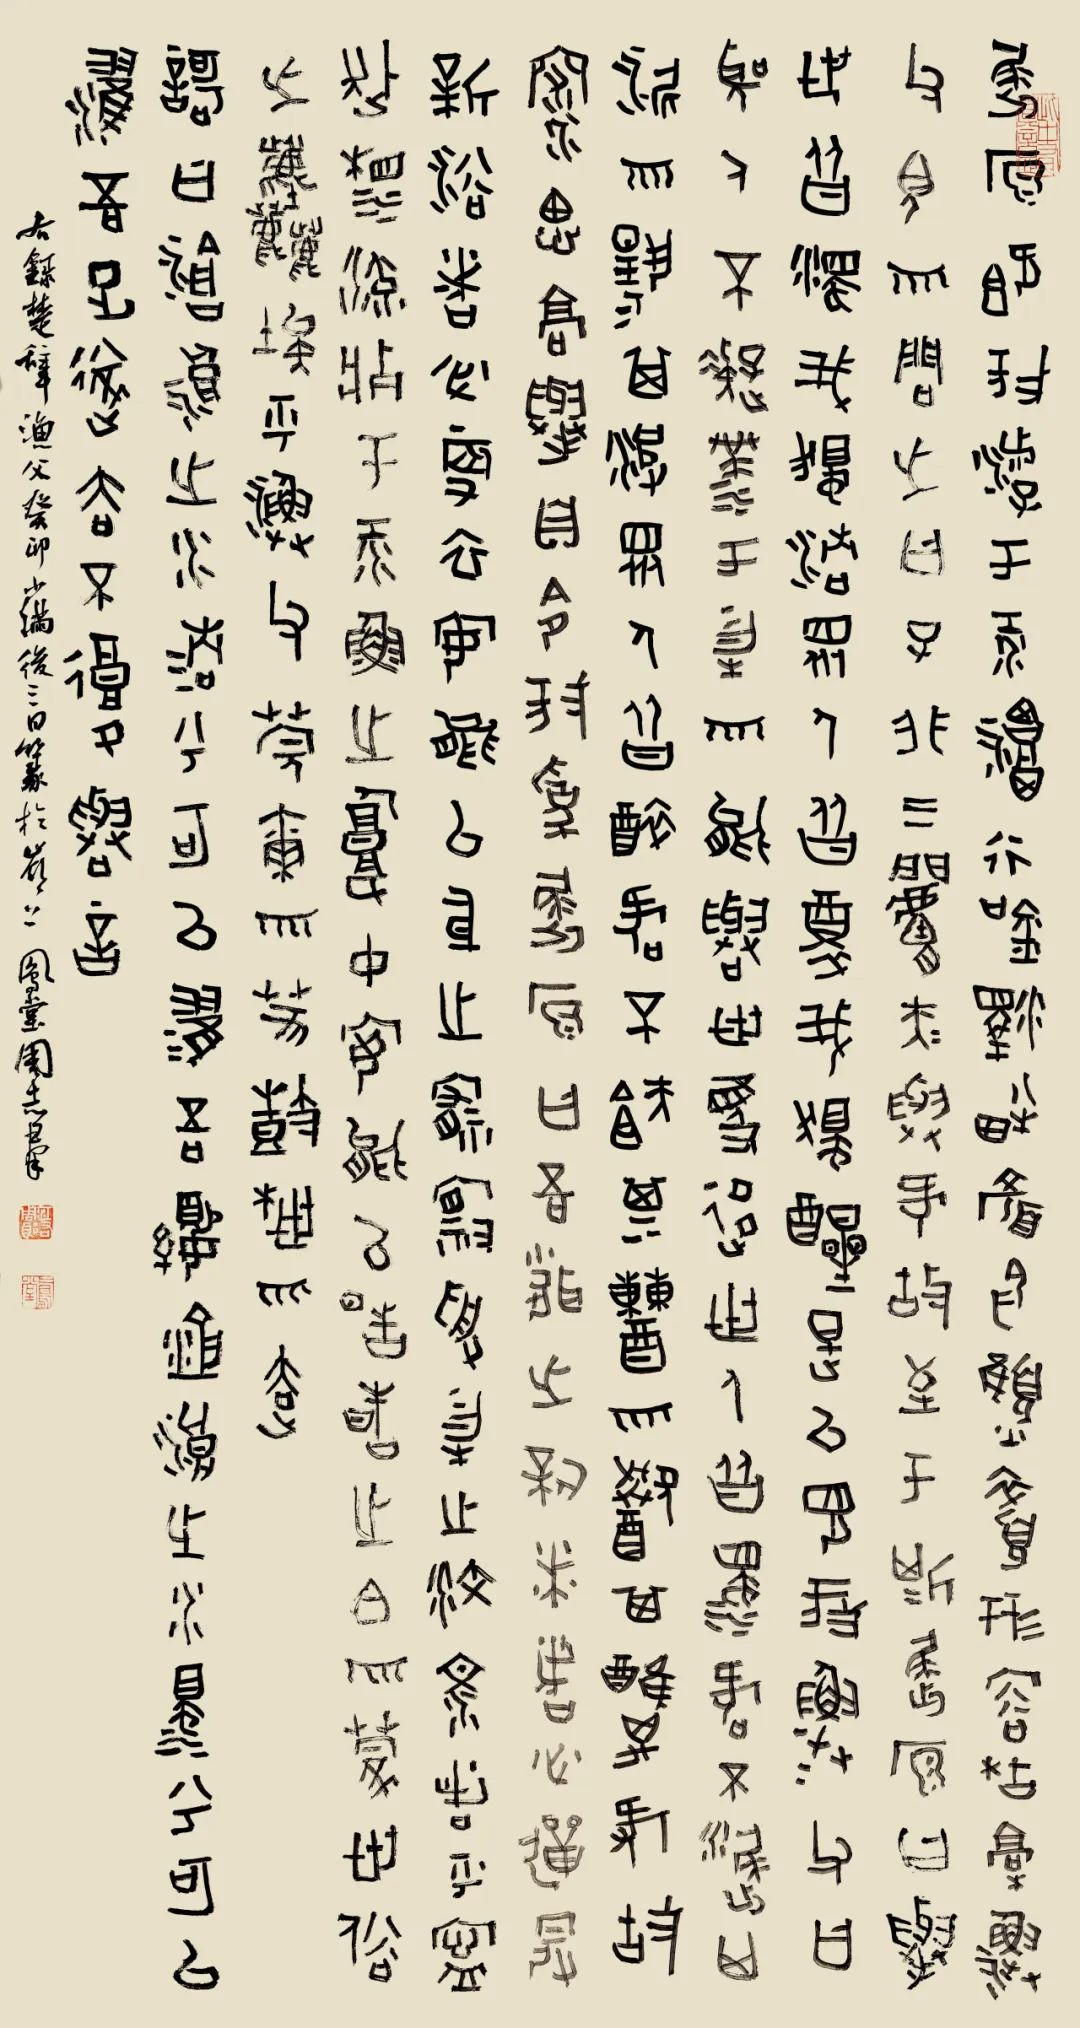 屈原既放游于江潭行吟澤畔顏色憔悴形容枯槁漁
父見而問之曰子非三閭大夫與何故至于斯屈原曰舉
世皆濁我獨清眾人皆醉我獨醒是以見放漁父曰
聖人不凝滯于物而能與世推移世人皆濁何不淈其
泥而揚其波眾人皆醉何不餔其糟而歠其醨何故
深思高舉自令放為屈原曰吾聞之新沐者必彈冠
新浴者必振衣安能以身之察察受物之汶汶者乎寧
赴湘流葬于江魚之腹中安能以皓皓之白而蒙世俗
之塵埃乎漁父莞爾而笑鼓枻而去
歌曰滄浪之水清兮可以濯吾纓滄浪之水濁兮可以
濯吾足遂去不復與言
右錄楚辭漁父癸卯小滿後三日篆於鳳堂周志